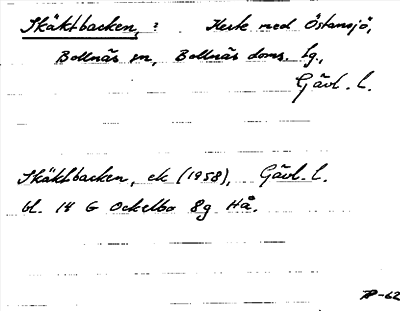 Skäktbacken, : Herte med Östansjö,
Bollnäs sn, Bollnäs doms. tg.,
Gävl. l.
Skäktbacken, ek (1958), Gävl. l.
bl. 14 G Ockelbo 8g Hå.
-62